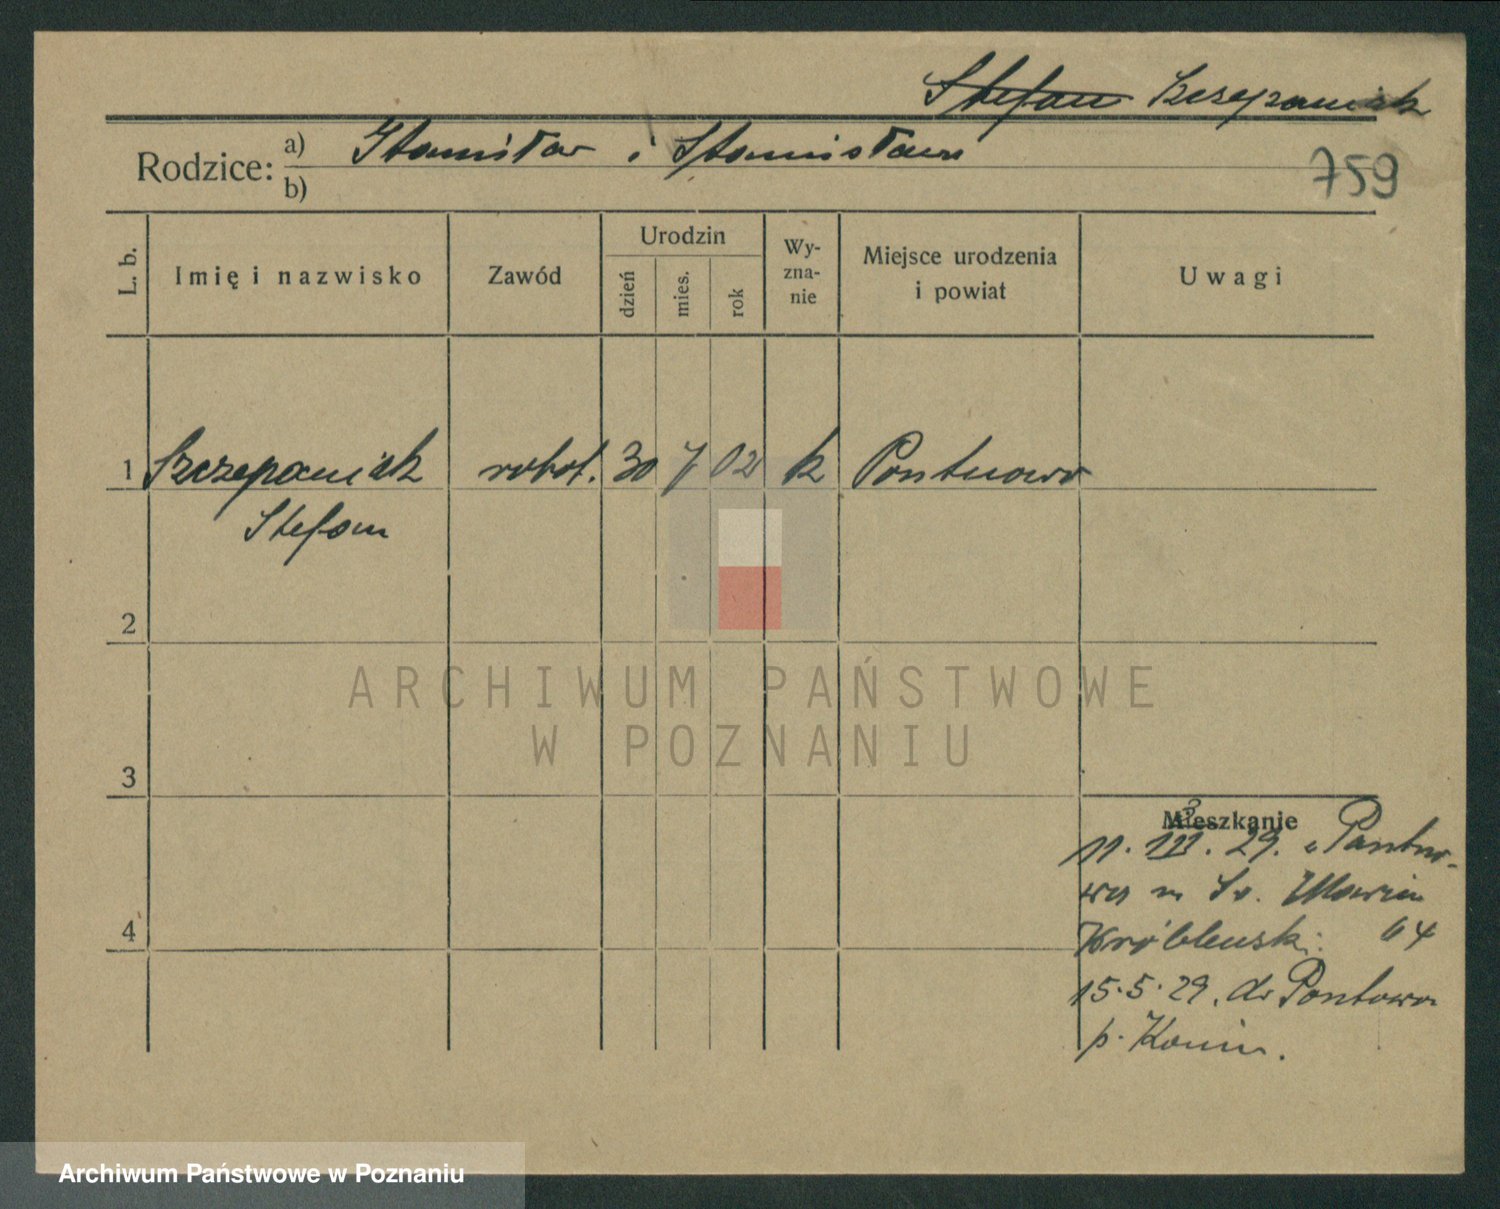 Stefan Szczepaniak
Rodzice: a) Stanisław i Stanisława
b)
759
L. b. Imię i nazwisko Zawód Urodzin dzień mies. rok Wy-zna-nie Miejsce urodzenia i powiat Uwagi
1 Szczepaniak robot. 30 7 02 k Pontnowo
Stefan
2
ARCHIWUM PAŃSTWOWE
W POZNANIU
3
Mieszkanie
11. III. 29. z Pantno-
wa n Św. Marcin
4 Wróblewski 64
15.5.29. do Pontowo
p. Konin.
Archiwum Państwowe w Poznaniu